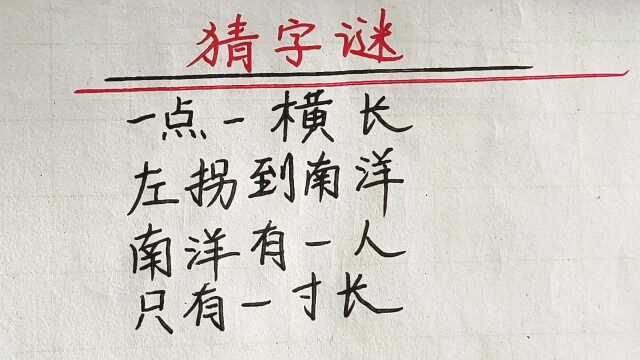 猜字谜
一点一横长
左拐到南洋
南洋有一人
只有一寸长